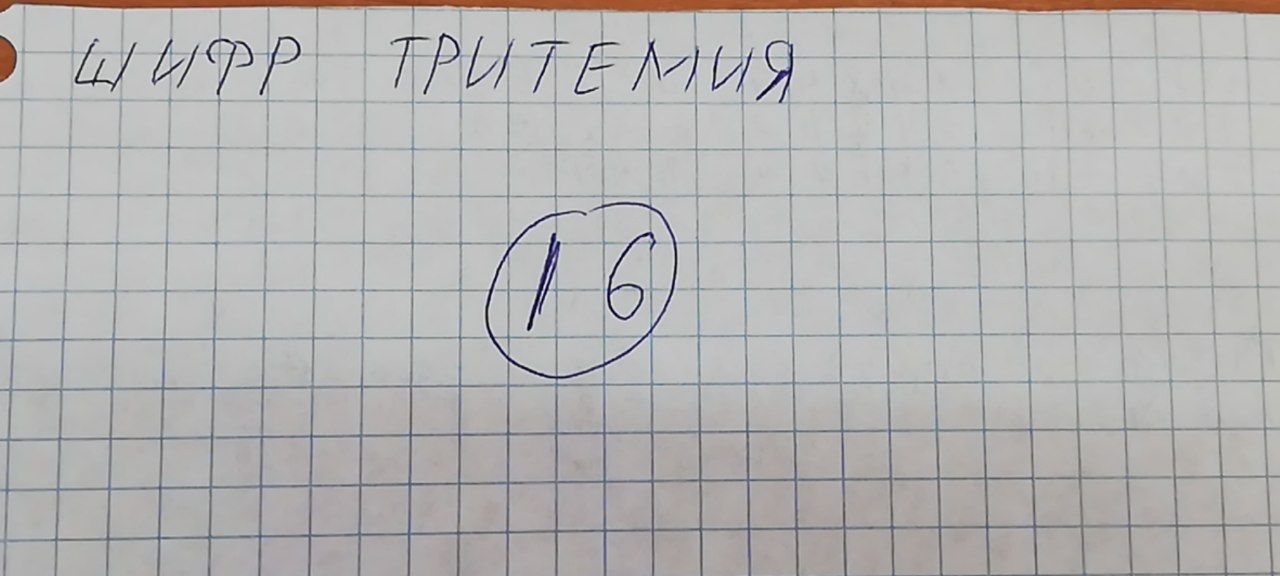 ШИФР ТРИТЕМИЯ
16